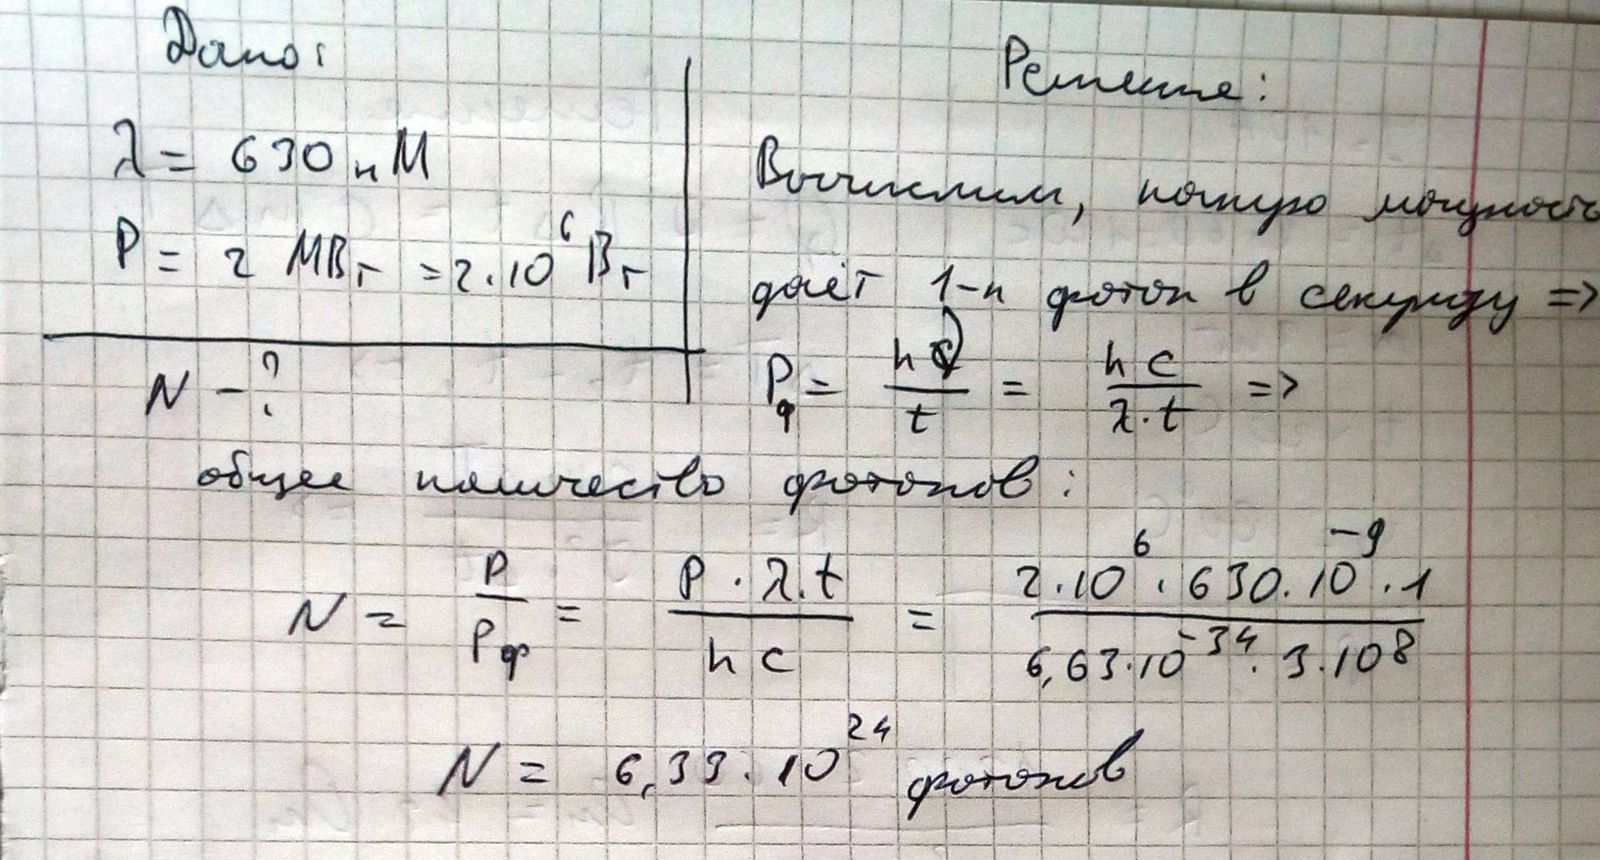 Дано:
λ = 630 нМ
P = 2 МВт = 2·10⁶ Вт
N - ?
Решение:
Вычислим, какую мощность
даёт 1-н фотон в секунду =>
Pф = hν/t = hc/(λ·t) =>
общее количество фотонов:
N = P/Pф = P·λ·t/(hc) = 2·10⁶·630·10⁻⁹·1/(6,63·10⁻³⁴·3·10⁸)
N = 6,33·10²⁴ фотонов